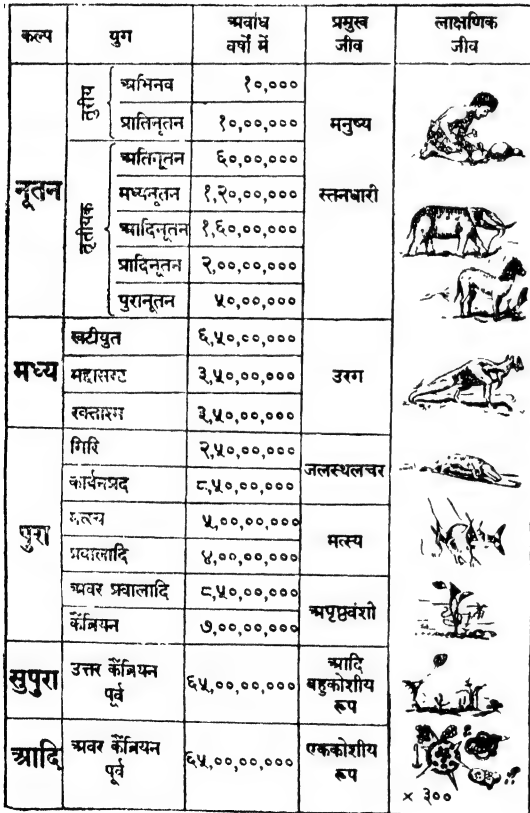 कल्प युग अवधि वर्षों में प्रमुख जीव लाक्षणिक जीव
नूतन तुरीय अभिनव १०,००० मनुष्य
प्रातिनूतन १०,००,०००
तृतीयक अतिनूतन ६०,००,००० स्तनधारी
मध्यनूतन १,२०,००,०००
आदिनूतन १,६०,००,०००
प्रादिनूतन २,००,००,०००
पुरानूतन ५०,००,०००
मध्य खटीयुत ६,५०,००,००० उरग
महासरट ३,५०,००,०००
रक्ताश्म ३,५०,००,०००
पुरा गिरि २,५०,००,००० जलस्थलचर
कार्बनप्रद ८,५०,००,०००
मत्स्य ५,००,००,००० मत्स्य
प्रवालादि ४,००,००,०००
अवर प्रवालादि ८,५०,००,००० अपृष्ठवंशी
कैंब्रियन ७,००,००,०००
सुपुरा उत्तर कैंब्रियन पूर्व ६५,००,००,००० आदि बहुकोशीय रूप
आदि अवर कैंब्रियन पूर्व ६५,००,००,००० एककोशीय रूप
× ३००